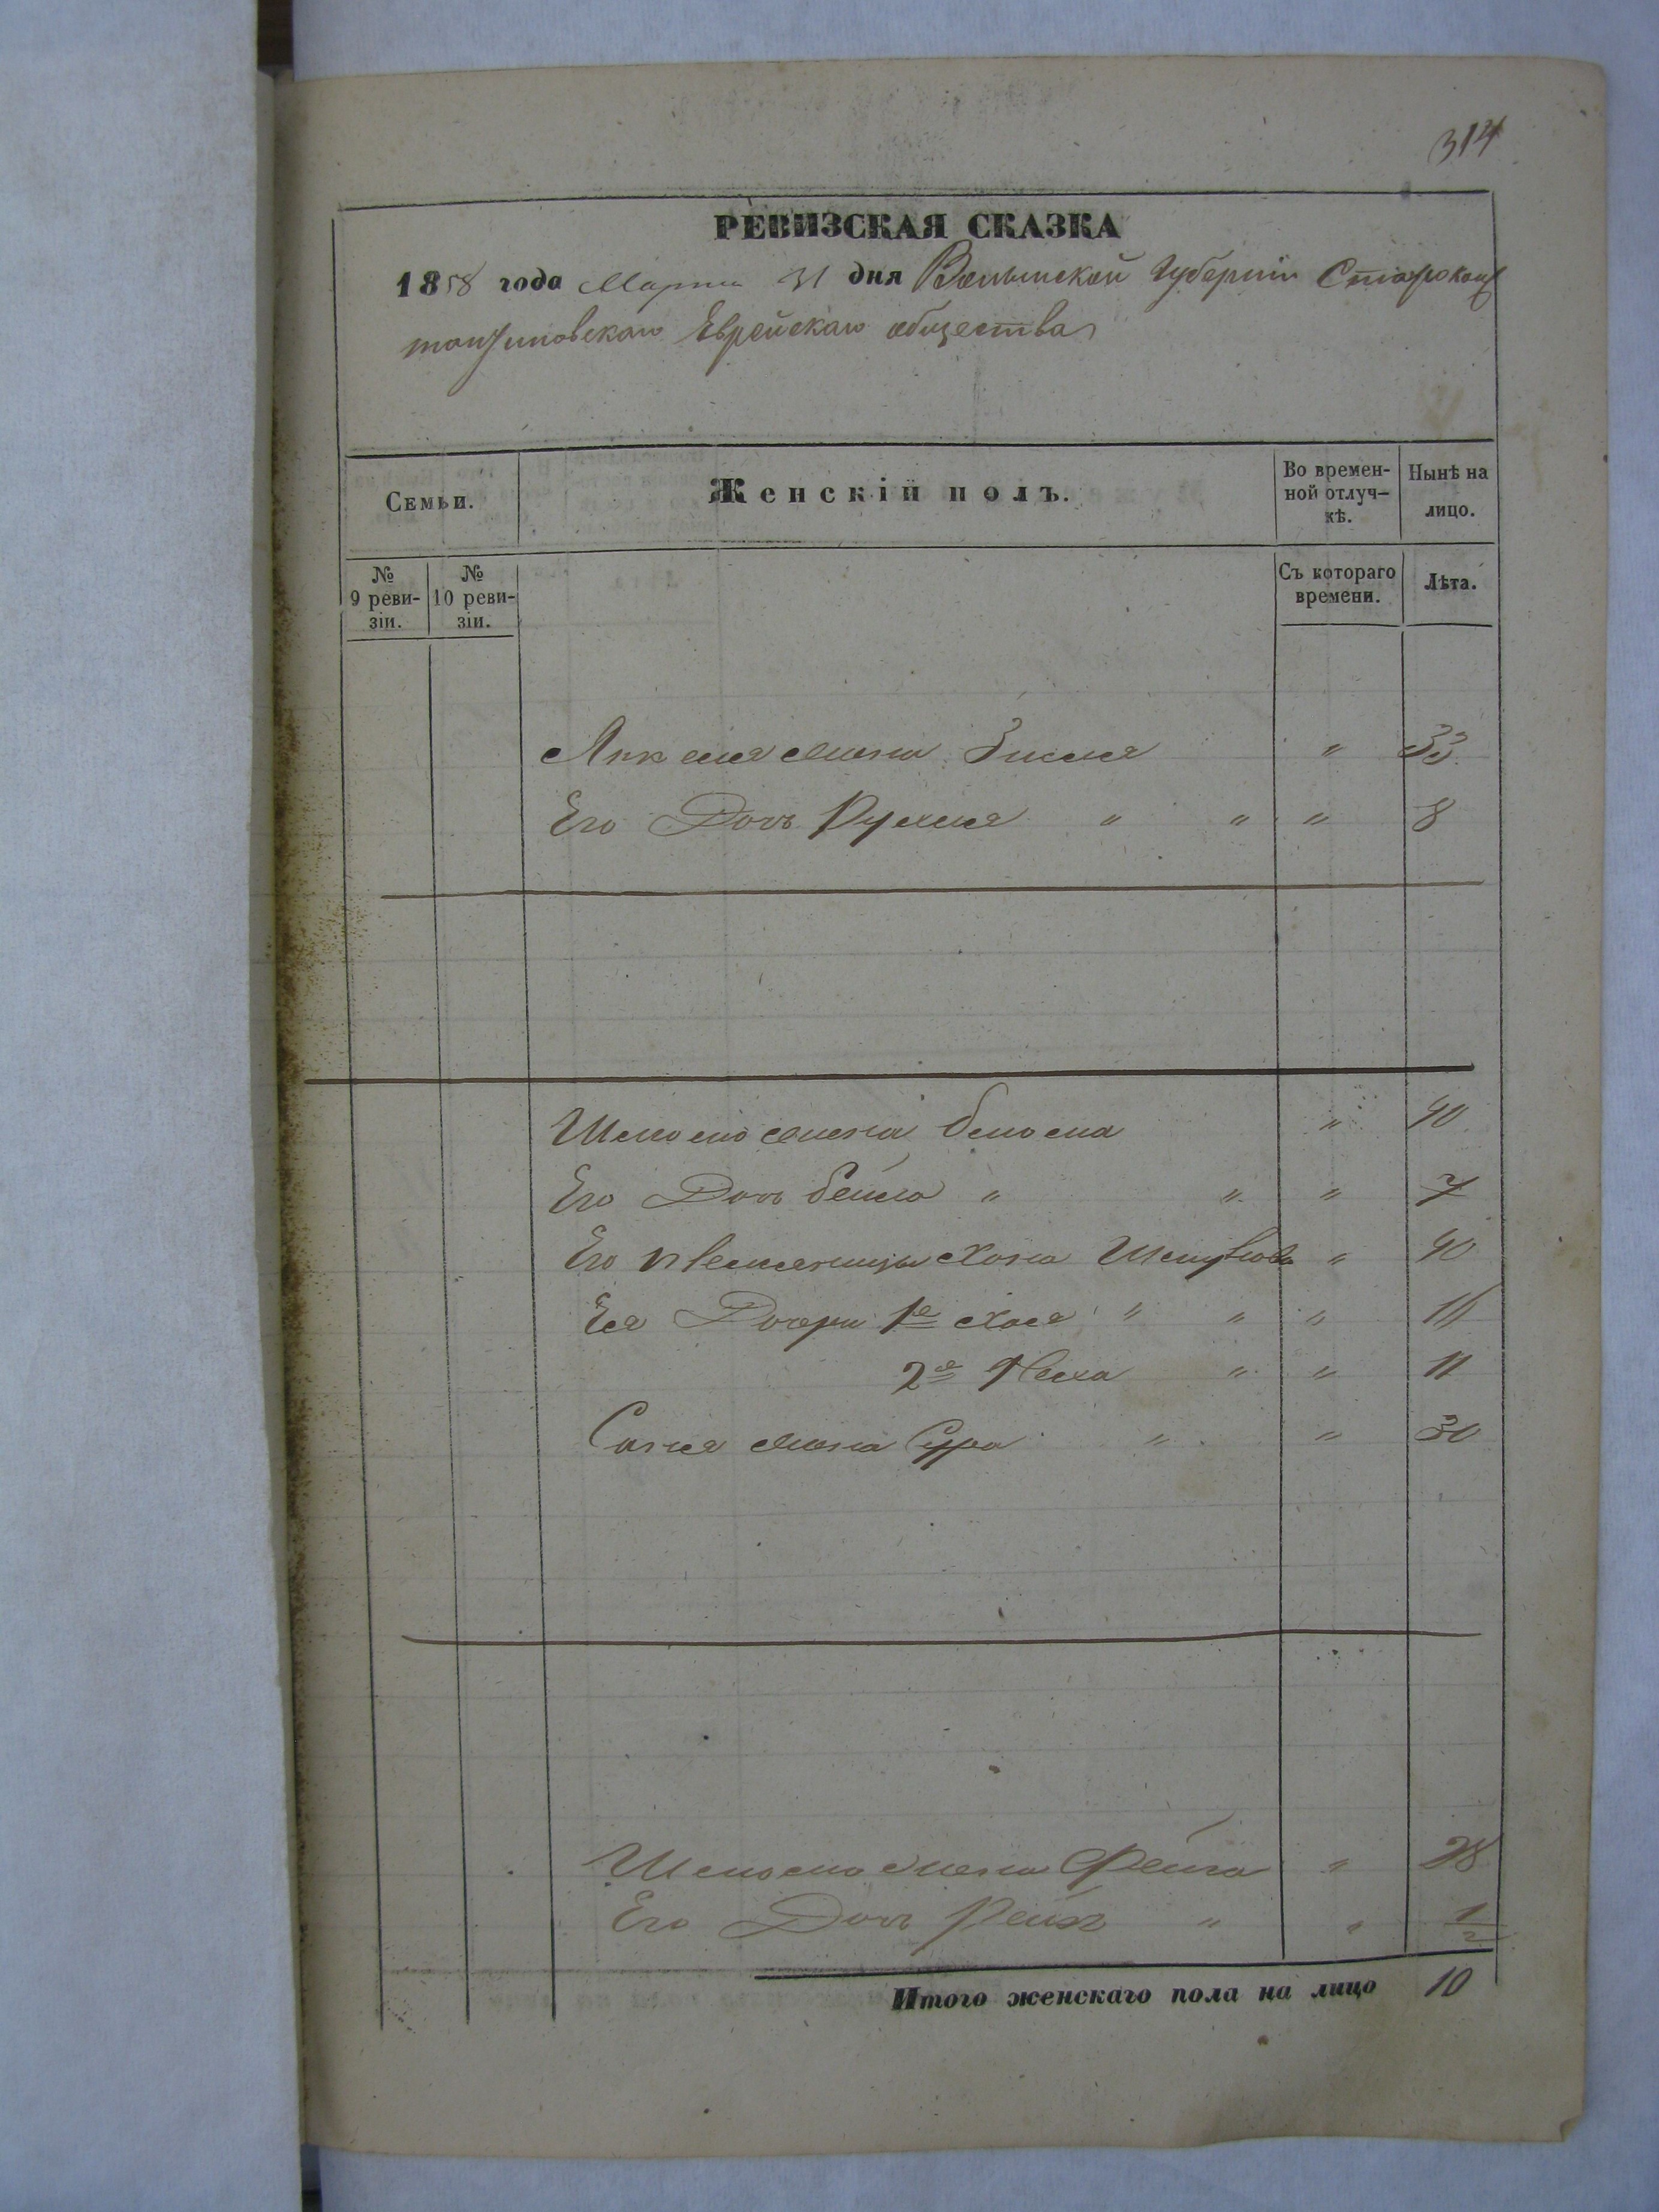 314
РЕВИЗСКАЯ СКАЗКА
1858 года Марта 31 дня Волынской Губерніи Старокон
тантиновскаго Еврейскаго общества
Семьи.
Женскій полъ.
Во времен-
ной отлуч-
кѣ.
Нынѣ на
лицо.
№
9 реви-
зіи.
№
10 реви-
зіи.
Съ котораго
времени.
Лѣта.
жена Зисля " 33
Его Дочь Рухля " " " 8
Шлиома жена " 40
Его Дочь Бейла " " " 7
Его Хана " 40
Ея Дочери 1я Хая " " " 16
2я " " 11
жена Сура " " 30
Шлиома жена Фейга " 28
Его Дочь " " 1/2
Итого женскаго пола на лицо 10